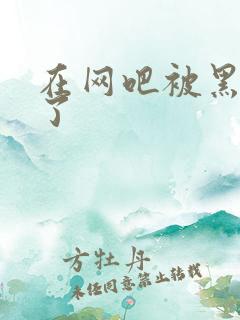 在网吧被黑
了
方牡丹
未经同意禁止转载